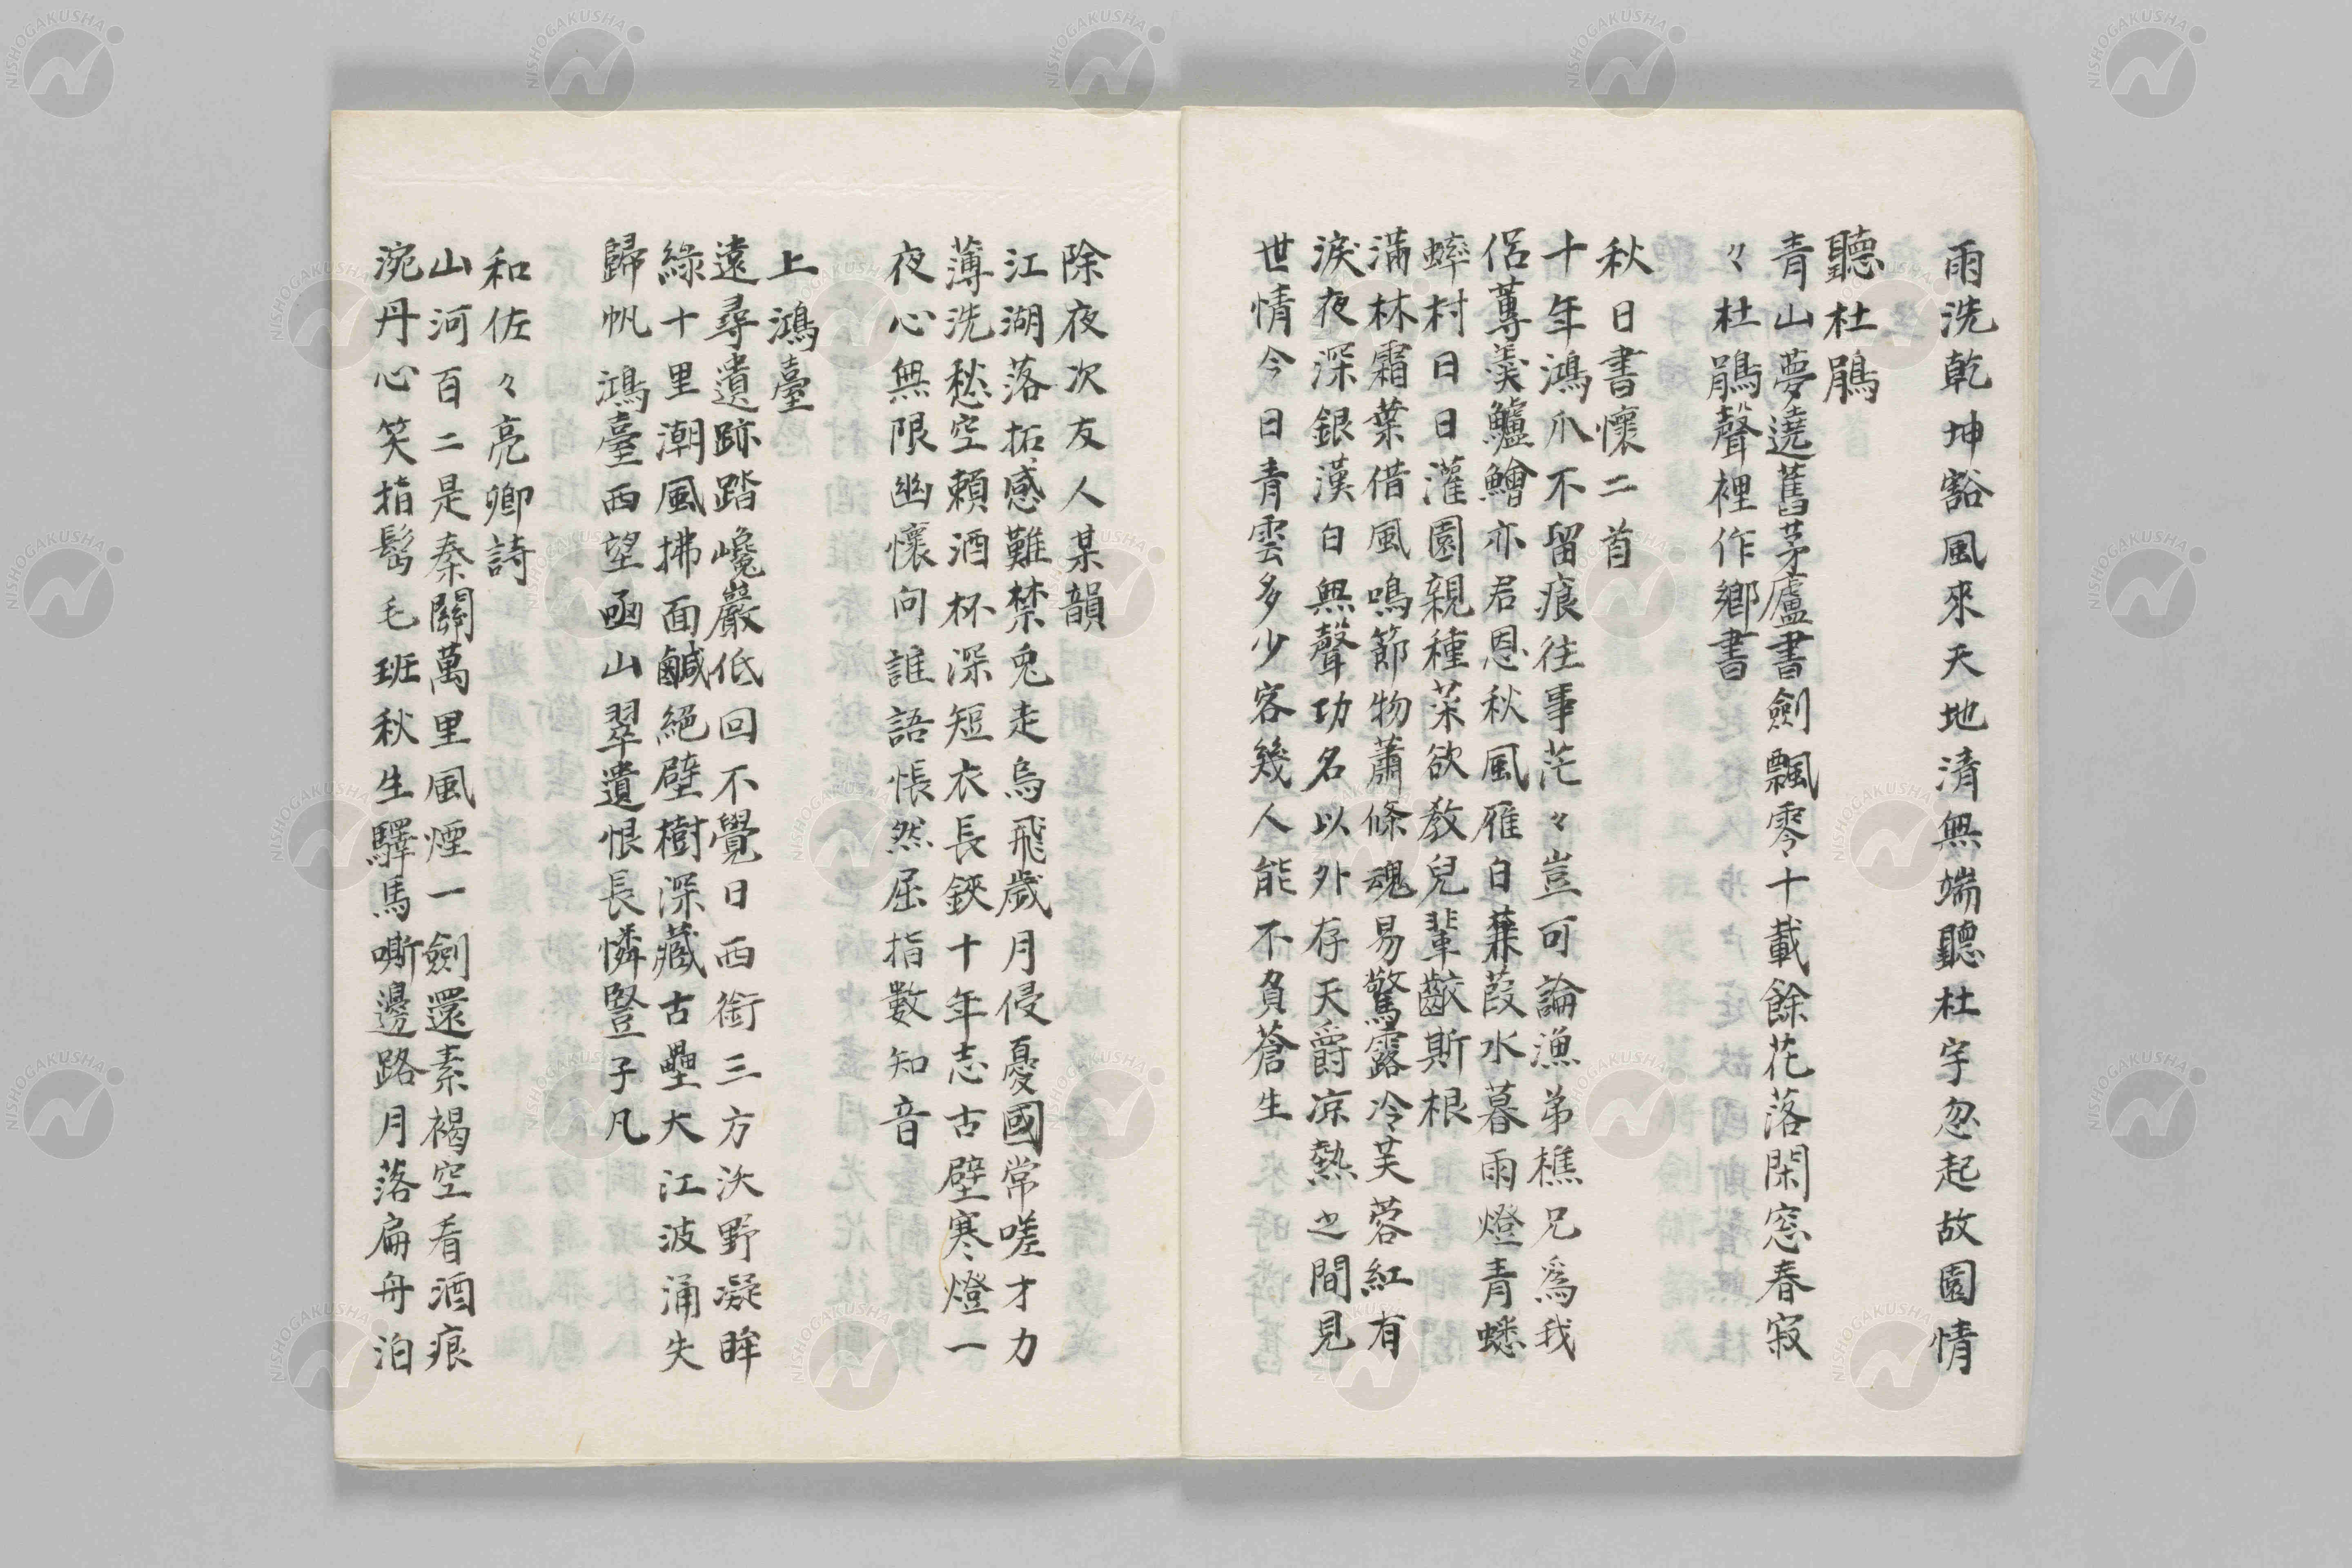 雨洗乾坤豁風來天地清無端聽杜宇忽起故園情
聽杜鵑
青山夢遶舊茅廬書劍飄零十載餘花落閑窓春寂
々杜鵑聲裡作鄉書
秋日書懷二首
十年鴻爪不留痕往事茫々豈可論漁弟樵兄爲我
侶蓴羹鱸鱠亦君恩秋風雁白蒹葭水暮雨燈青蟋
蟀村日日灌園親種菜欲教兒輩齩斯根
滿林霜葉借風鳴節物蕭條魂易驚露冷芙蓉紅有
淚夜深銀漢白無聲功名以外存天爵凉熱之間見
世情今日青雲多少客幾人能不負蒼生
除夜次友人某韻
江湖落拓感難禁兎走烏飛歲月侵憂國常嗟才力
薄洗愁空賴酒杯深短衣長鋏十年志古壁寒燈一
夜心無限幽懷向誰語悵然屈指數知音
上鴻臺
遠尋遺跡踏巉巖低回不覺日西銜三方沃野凝眸
綠十里潮風拂面鹹絕壁樹深藏古壘大江波涌失
歸帆鴻臺西望凾山翠遺恨長憐豎子凡
和佐々亮卿詩
山河百二是秦關萬里風煙一劍還素褐空看酒痕
涴丹心笑指髩毛班秋生驛馬嘶邊路月落扁舟泊
NISHOGAKUSHA